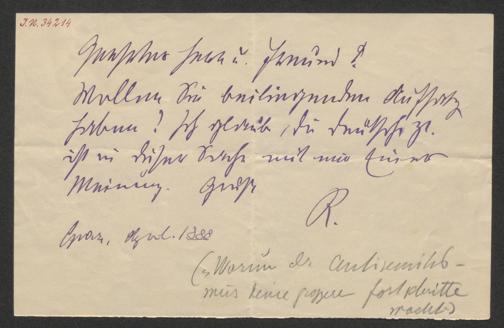 J.N. 34214
Geehrter Herr u. Freund!
Wollen Sie beiliegenden Aufsatz
haben? Ich glaube, die deutsche Z.
ist in dieser Sache mit mir Einer
Meinung. Gruß
R.
Graz, 1888
("Warum der Antisemitis-
mus keine grossen Fortschritte
macht")